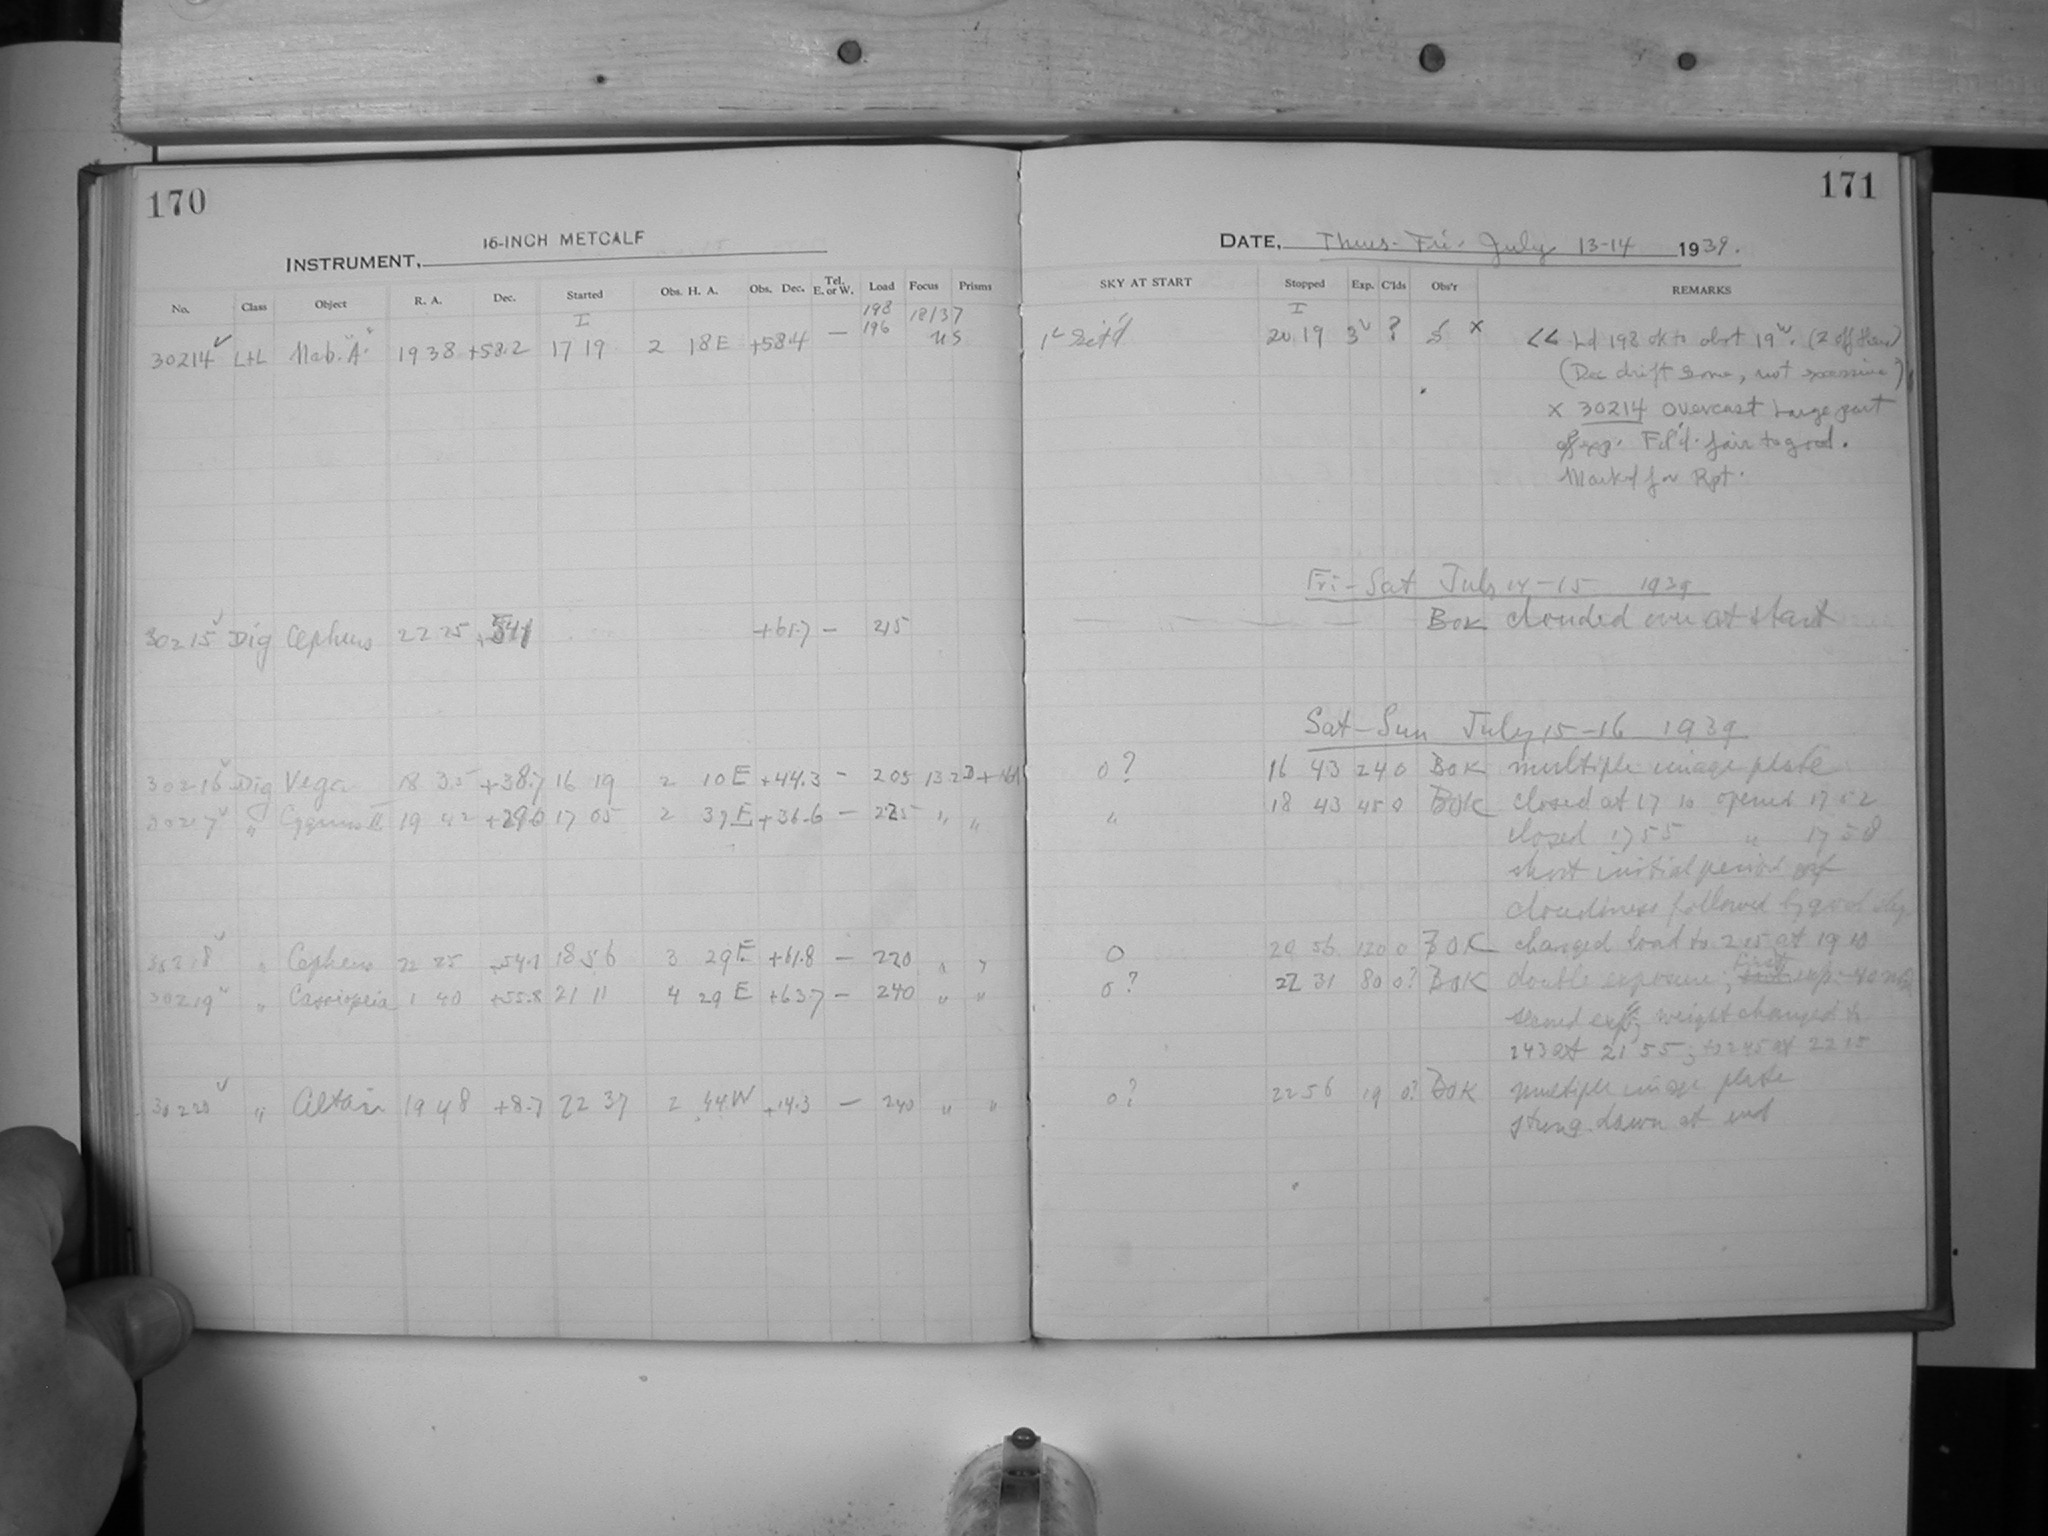 170
INSTRUMENT, 16-INCH METCALF
No. Class Object R. A. Dec. Started Obs. H. A. Obs. Dec. Tel. E. or W. Load Focus Prisms
I 198 18/37
30214 L+L Nab. "A" 19 38 +58.2 17 19 2 18 E +58.4 — 196 US
30215 Dig Cepheus 22 25 +54.1 +61.7 — 215
30216 Dig Vega 18 35 +38.7 16 19 2 10 E +44.3 — 205 13.2
30217 " Cygnus II 19 42 17 05 2 37 E +36.6 — 225 " "
30218 " Cepheus 22 25 +54.1 18 56 3 29 E +61.8 — 220 " "
30219 " Cassiopeia 1 40 +55.8 21 11 4 29 E +63.7 — 240 " "
30220 " Altair 19 48 +8.7 22 37 2 44 W +14.3 — 240 " "
171
DATE, Thurs-Fri. July 13-14 1939.
SKY AT START Stopped Exp. C'lds Obs'r REMARKS
I
20 19 3 ? S x << Ld 198 ok to abt 19. (2 off there)
(Dec drift some, not excessive)
x 30214 overcast large part
of exp. Fd'd. fair to good.
Marked for Rpt.
Fri-Sat July 14-15 1939
BOK clouded over at start
Sat-Sun July 15-16 1939
0? 16 43 24 0 BOK multiple image plate
" 18 43 45 0 BOK closed at 17 10 opened 17 52
closed 17 55 " 17 58
short initial period of
cloudiness followed by good sky
0 20 56 120 0 BOK changed load to 215 at 19 10
0? 22 31 80 0? BOK double exposure; first exp. 40 min
second exp; weight changed to
243 at 21 55; to 245 at 22 15
0? 22 56 19 0? BOK multiple image plate
strong dawn at end